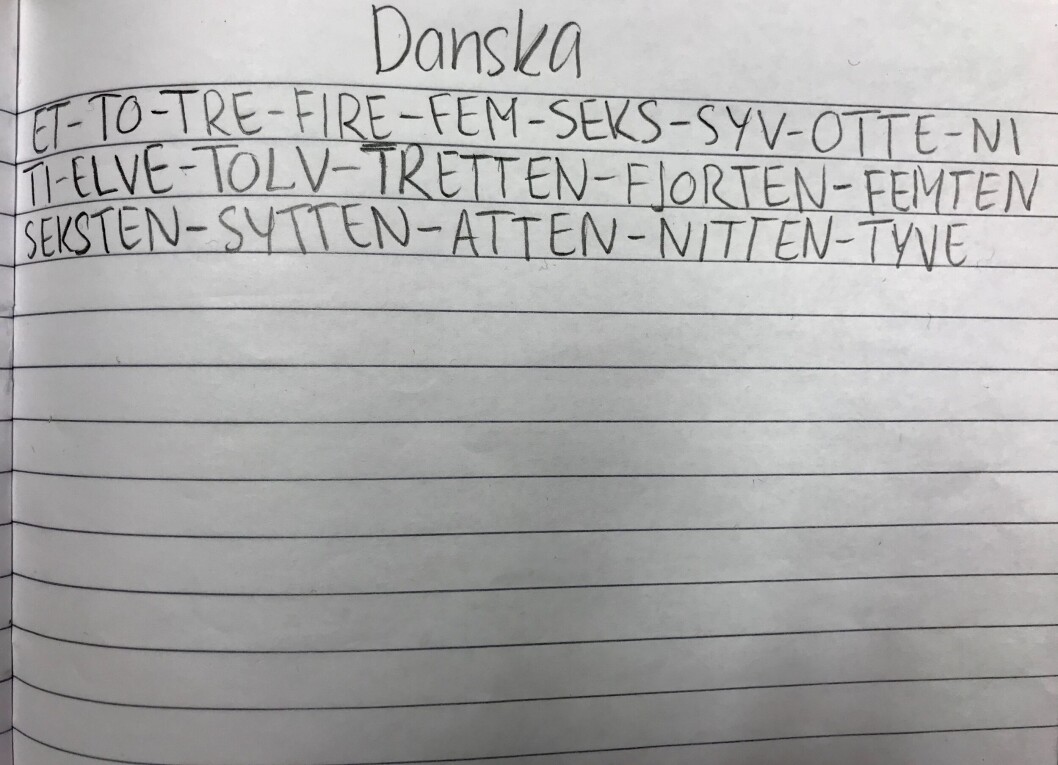 Danska
ET-TO-TRE-FIRE-FEM-SEKS-SYV-OTTE-NI
TI-ELVE-TOLV-TRETTEN-FJORTEN-FEMTEN
SEKSTEN-SYTTEN-ATTEN-NITTEN-TYVE